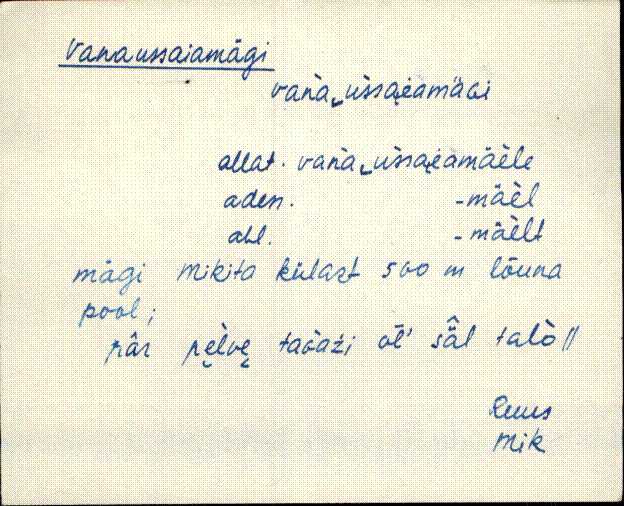 Vanaussaiamägi
vanà‿ùssa̬iamäGi
allat. vanà‿ùssa̬iamäèle
adess. -mäèl
abl. -mäèlt
mägi Mikita külast 500 m lõuna
pool;
pâr pè̬lve̬ taGaži ol̄' sä̂l talò //
Ruus
Mik